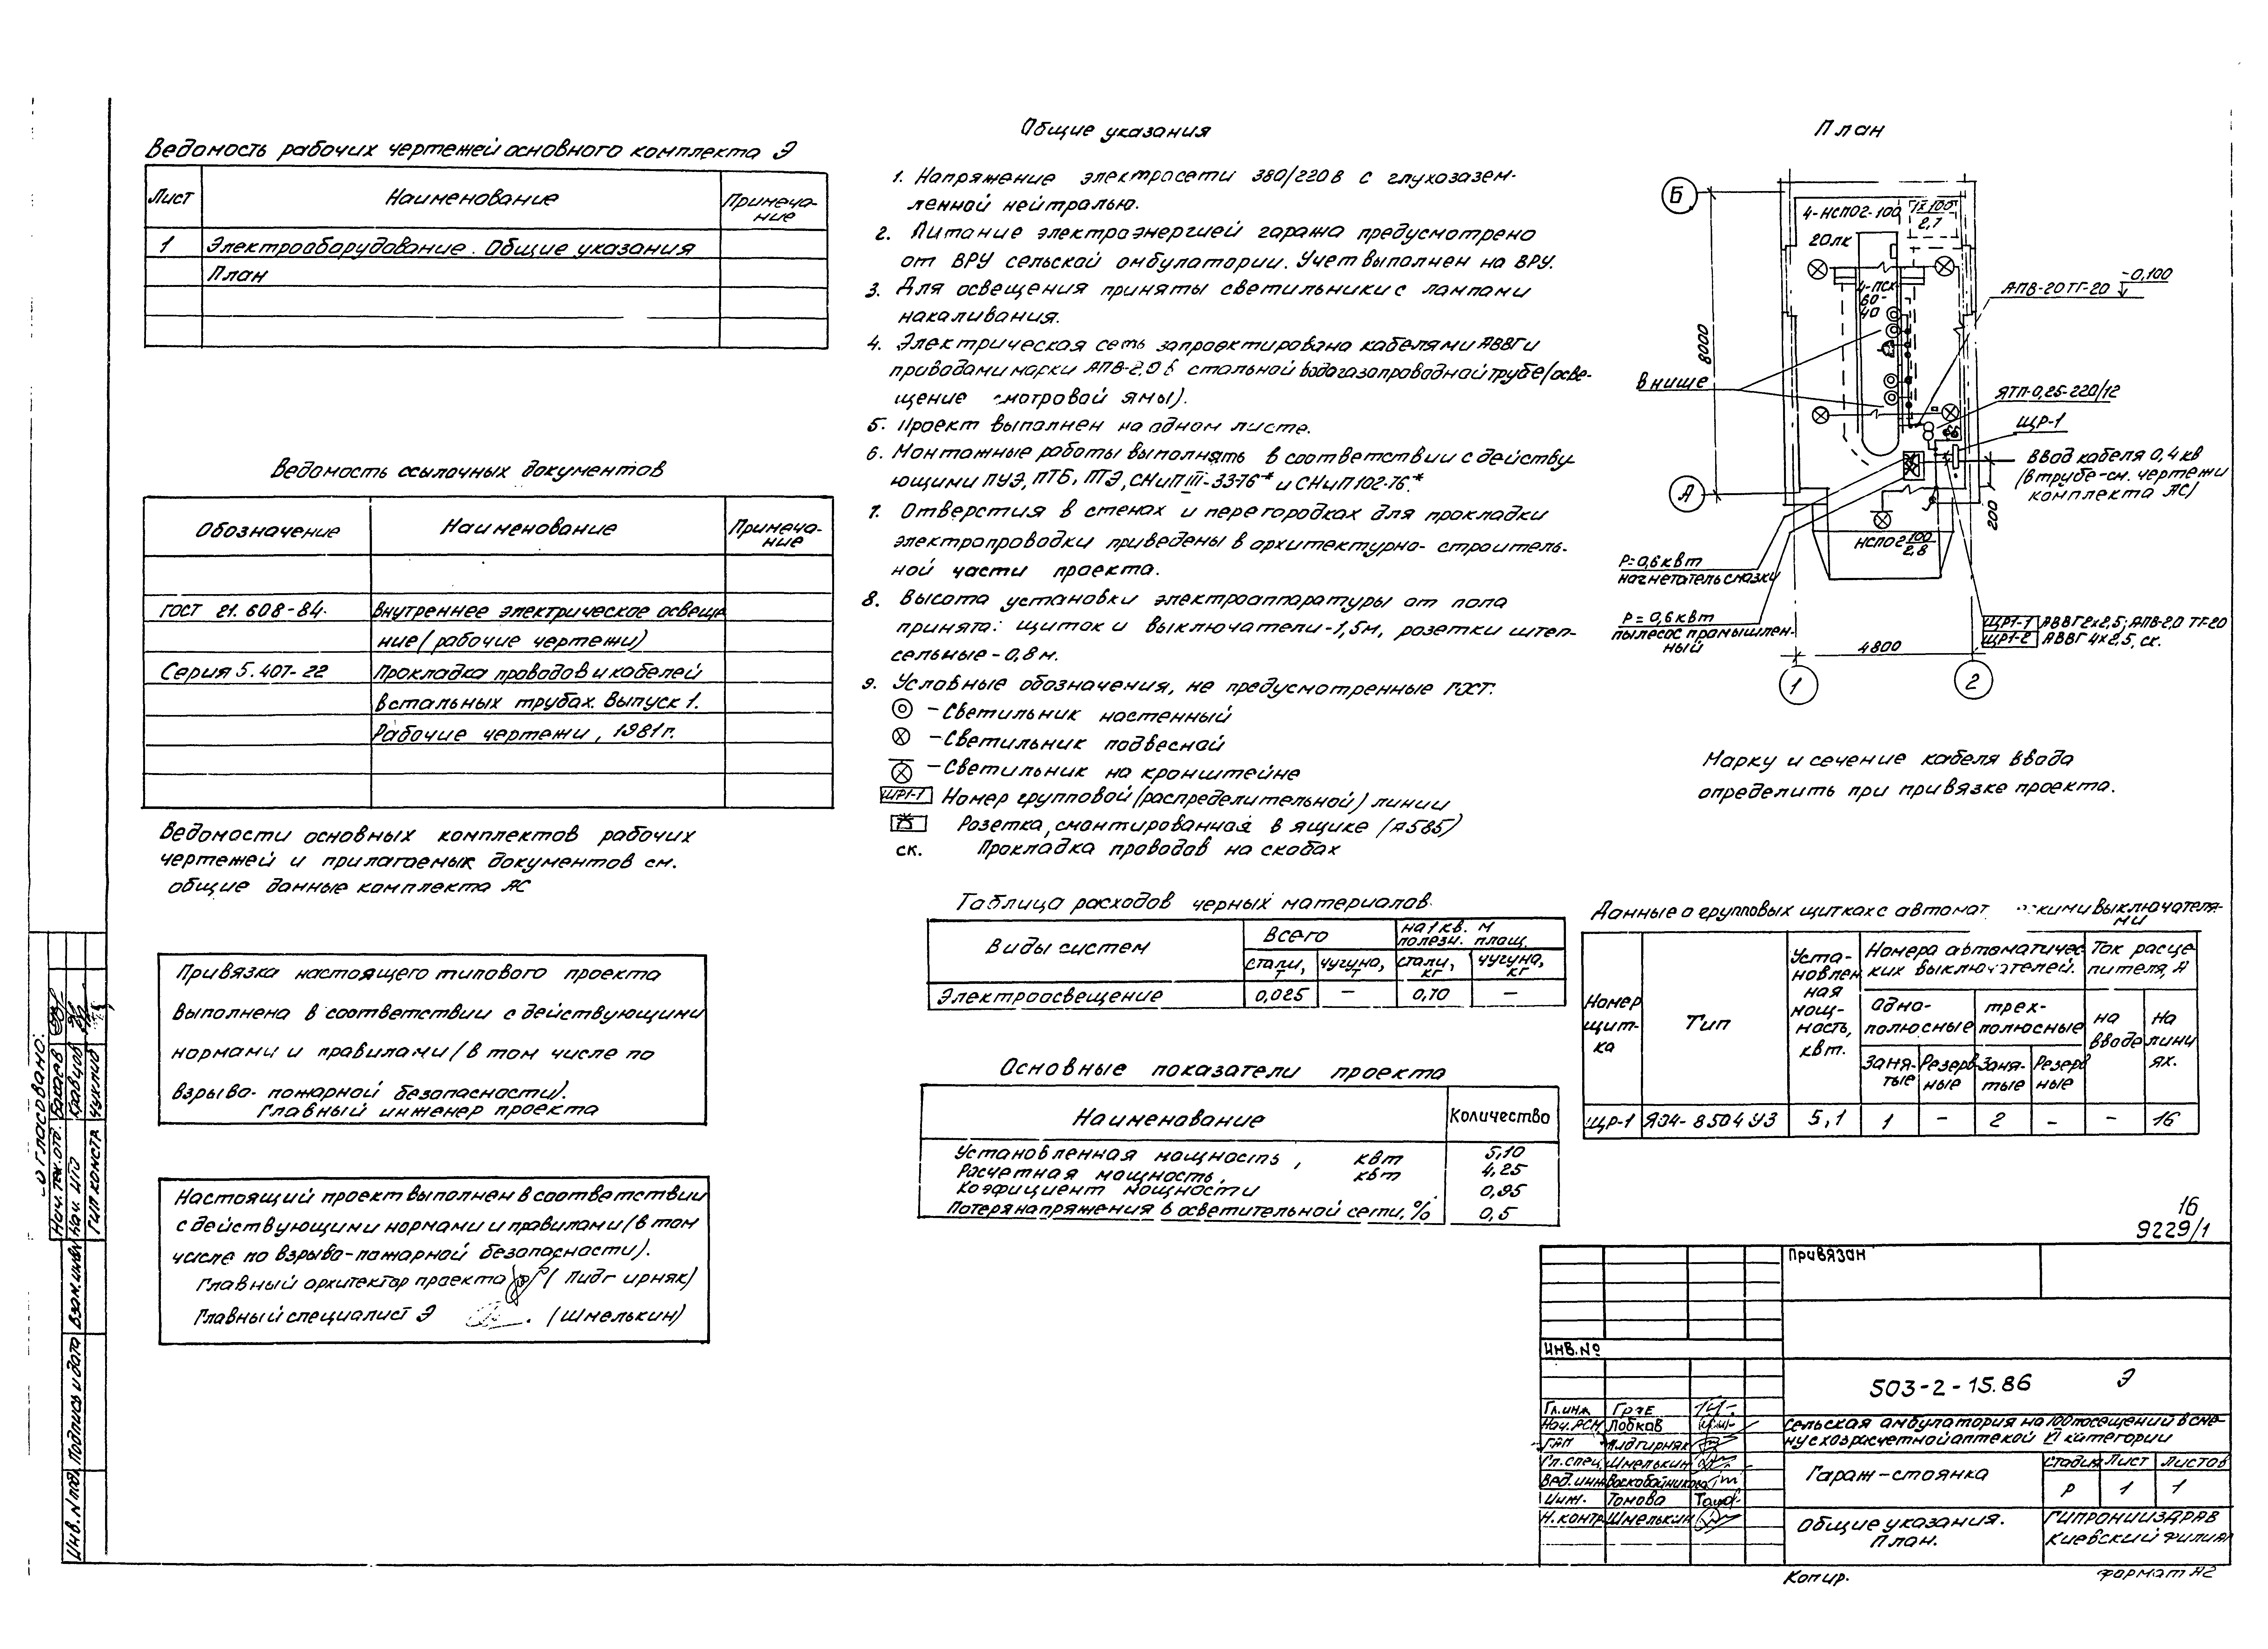 Ведомость рабочих чертежей основного комплекта Э
Лист
Наименование
Примеча-
ние
1
Электрооборудование. Общие указания
План
Ведомость ссылочных документов
Обозначение
Наименование
Примеча-
ние
ГОСТ 21.608-84.
Внутреннее электрическое освеще
ние (рабочие чертежи)
Серия 5.407-22
Прокладка проводов и кабелей
в стальных трубах. Выпуск 1.
Рабочие чертежи, 1981г.
Ведомости основных комплектов рабочих
чертежей и прилагаемых документов см.
общие данные комплекта АС
Привязка настоящего типового проекта
выполнена в соответствии с действующими
нормами и правилами (в том числе по
взрыво- пожарной безопасности).
Главный инженер проекта
Настоящий проект выполнен в соответствии
с действующими нормами и правилами (в том
числе по взрыво-пожарной безопасности).
Главный архитектор проекта (Пидг ирняк)
Главный специалист Э (Шмелькин)
Общие указания
1. Напряжение электросети 380/220 в с глухозазем-
ленной нейтралью.
2. Питание электроэнергией гаража предусмотрено
от ВРУ сельской амбулатории. Учет выполнен на ВРУ.
3. Для освещения приняты светильники с лампами
накаливания.
4. Электрическая сеть запроектирована кабелями АВВГ и
приводами марки АПВ-2,0 в стальной водогазопроводной трубе (осве-
щение смотровой ямы).
5. Проект выполнен на одном листе.
6. Монтажные работы выполнять в соответствии с действу-
ющими ПУЭ, ПТБ, ПТЭ, СНиП III-33-76* и СНиП 102-76.*
7. Отверстия в стенах и перегородках для прокладки
электропроводки приведены в архитектурно- строитель-
ной части проекта.
8. Высота установки электроаппаратуры от пола
принята: щиток и выключатели-1,5м, розетки штеп-
сельные - 0,8 м.
9. Условные обозначения, не предусмотренные ГОСТ:
- Светильник настенный
- Светильник подвесной
- Светильник на кронштейне
ЩР1-1 Номер групповой (распределительной) линии
Розетка, смонтированная в ящике (А585)
ск. Прокладка проводов на скобах
Таблица расходов черных материалов.
Виды систем
Всего
на 1 кв. м
полезн. площ.
стали, т
чугуна, т
стали, кг
чугуна, кг
Электроосвещение 0,025 — 0,70 —
Основные показатели проекта
Наименование
Количество
Установленная мощность, квт 5,10
Расчетная мощность, квт 4,25
Коэфициент мощности 0,95
Потеря напряжения в осветительной сети, % 0,5
План
Б
4-НСП02-100
1х100
2,7
20лк
4-ПСХ
60-
40
АПВ-20 ТГ-20
-0,100
8000
в нише
ЯТП-0,25-220/12
ЩР-1
Ввод кабеля 0,4 кв
(в трубе-см. чертежи
комплекта АС)
А
200
НСП02 100
2,8
Р=0,6 квт
нагнетатель смазки
Р=0,6 квт
пылесос промышлен-
ный
ЩР1-1 АВВГ 2х2,5; АПВ-2,0 ТГ-20
ЩР1-2 АВВГ 4х2,5, ск.
4800
1
2
Марку и сечение кабеля ввода
определить при привязке проекта.
Данные о групповых щитках с автомат скими выключателя-
ми
Номер
щит-
ка
Тип
Уста-
новлен
ная
мощ-
ность,
квт.
Номера автоматичес
ких выключателей.
Ток расце
пителя, А
одно-
полюсные
трех-
полюсные
на
вводе
на
лини
ях.
Заня-
тые
Резерв
ные
Заня-
тые
Резерв
ные
ЩР-1 ЯЭ4-8504 У3 5,1 1 – 2 – – 16
16
9229/1
Привязан
Инв.№
503-2-15.86 Э
Сельская амбулатория на 100 посещений в сме-
ну с хозрасчетной аптекой VI категории
Гл.инж
Нач.АСМ Лобков
ГАП Пидгирняк
Гл.спец. Шмелькин
Вед.инж Воскобойникова
Инж. Томова
Н.контр. Шмелькин
Гараж-стоянка
Стадия Лист Листов
Р 1 1
Общие указания.
План.
ГИПРОНИИЗДРАВ
Киевский филиал
Копир.
Формат А2
Согласовано:
Нач. тех. отд. Бакаев
Нач. ИТО Кравцов
ГИП констр
Инв.N подл. Подпись и дата Взам.инв.N